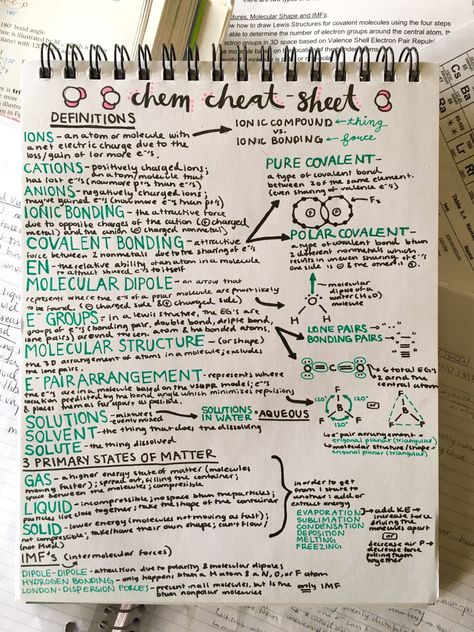 tures, Molecular Shape and IMFs:
w how to draw Lewis Structures for covalent molecules using the four steps
able to determine the number of electron groups around the central atom,
ctron groups in 3D space based on Valence Shell Electron Pair Repul
chem cheat-sheet
DEFINITIONS
IONS - an atom or molecule with
a net electric charge due to the
loss/gain of 1 or more e⁻'s
IONIC COMPOUND ← thing
vs.
IONIC BONDING ← force
CATIONS - positively charged ions;
an atom/molecule that
has lost e⁻'s (now more p⁺'s than e⁻'s)
ANIONS - negatively charged ions;
they've gained e⁻'s (now more e⁻'s than p⁺'s)
IONIC BONDING - the attractive force
due to opposite charges of the cation (⊕ charged
metal) and the anion (⊖ charged nonmetal)
COVALENT BONDING - attractive
force between 2 nonmetals due to the sharing of e⁻'s
EN - the relative ability of an atom in a molecule
to attract shared e⁻'s to itself
PURE COVALENT -
a type of covalent bond
between 2 of the same element.
(even sharing of valence e⁻'s)
F F
F₂
POLAR COVALENT -
a type of covalent bond btwn
2 different nonmetals which
results in uneven sharing of e⁻'s
one side is ⊕ & the other is ⊖.
MOLECULAR DIPOLE - an arrow that
represents where the e⁻'s of a polar molecule are most likely
to be found (⊖ charged side & ⊕ charged side)
molecular
dipole of a
water (H₂O)
molecule
O
H H
E⁻ GROUPS - in a lewis structure, the EG's are
groups of e⁻'s (bonding pair, double bond, triple bond,
lone pairs) around the cen. atom & has bonded atoms,
LONE PAIRS →
BONDING PAIRS →
MOLECULAR STRUCTURE - (or shape)
the 3D arrangement of atoms in a molecule; excludes
the lone pairs.
O C O
total EG's
around the
central atom
E⁻ PAIR ARRANGEMENT - represents where
the e⁻'s are in a molecule based on the VSEPR model; e⁻'s
location predicted by the bond angle which minimizes repulsions
& places them as far apart as possible.
F
120° 120°
B
F F
120°
or
F
B
F F
e⁻ pair arrangement =
trigonal planar (triangular)
molecular structure (shape) =
trigonal planar (triangular)
SOLUTIONS - mixtures
evenly mixed
SOLUTIONS IN WATER = AQUEOUS
SOLVENT - the thing that does the dissolving
SOLUTE - the thing dissolved
3 PRIMARY STATES OF MATTER
GAS - a higher energy state of matter (molecules
moving faster); spread out, filling the container;
space between the molecules; compressible
LIQUID - incompressible; no space btwn the particles;
particles lie close together; take the shape of the container
SOLID - lower energy (molecules not moving as fast);
not compressible; take/have their own shape; can't flow
in order to get
from 1 state to
another: add or
extract energy
EVAPORATION
SUBLIMATION
CONDENSATION
DEPOSITION
MELTING
FREEZING
add KE →
increase force
driving the
molecules apart
or
decrease
decrease force
pulling them
together
IMF's (intermolecular forces)
DIPOLE-DIPOLE - attraction due to polarity & molecular dipoles
HYDROGEN BONDING - only happens btwn a H atom & a N, O, or F atom
LONDON-DISPERSION FORCES - present in all molecules, but is the only IMF
btwn nonpolar molecules